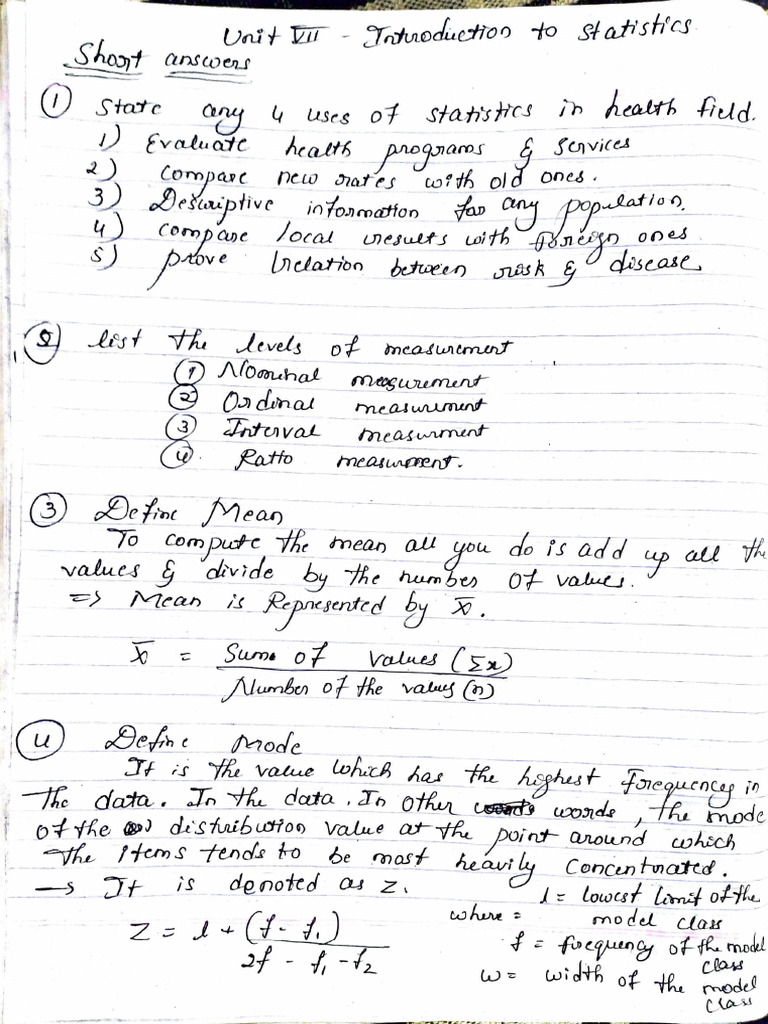 Unit VII - Introduction to Statistics
Short answers
① State any 4 uses of statistics in health field.
1) Evaluate health programs & services
2) compare new rates with old ones.
3) Descriptive information for any population.
4) compare local results with Foreign ones
5) prove relation between risk & disease
② list the levels of measurement
① Nominal measurement
② Ordinal measurment
③ Interval measurment
④ Ratio measurment.
③ Define Mean
To compute the mean all you do is add up all the
values & divide by the number of values.
=> Mean is Represented by x̄.
x̄ = Sum of values (Σx)
Number of the values (n)
④ Define Mode
It is the value which has the highest Frequency in
The data. In the data. In other words, the mode
of the distribution value at the point around which
the items tends to be most heavily concentrated.
→ It is denoted as Z.
l = lowest limit of the
where = model class
Z = l + (f - f₁)
2f - f₁ - f₂
f = frequency of the model
class
w = width of the model
class